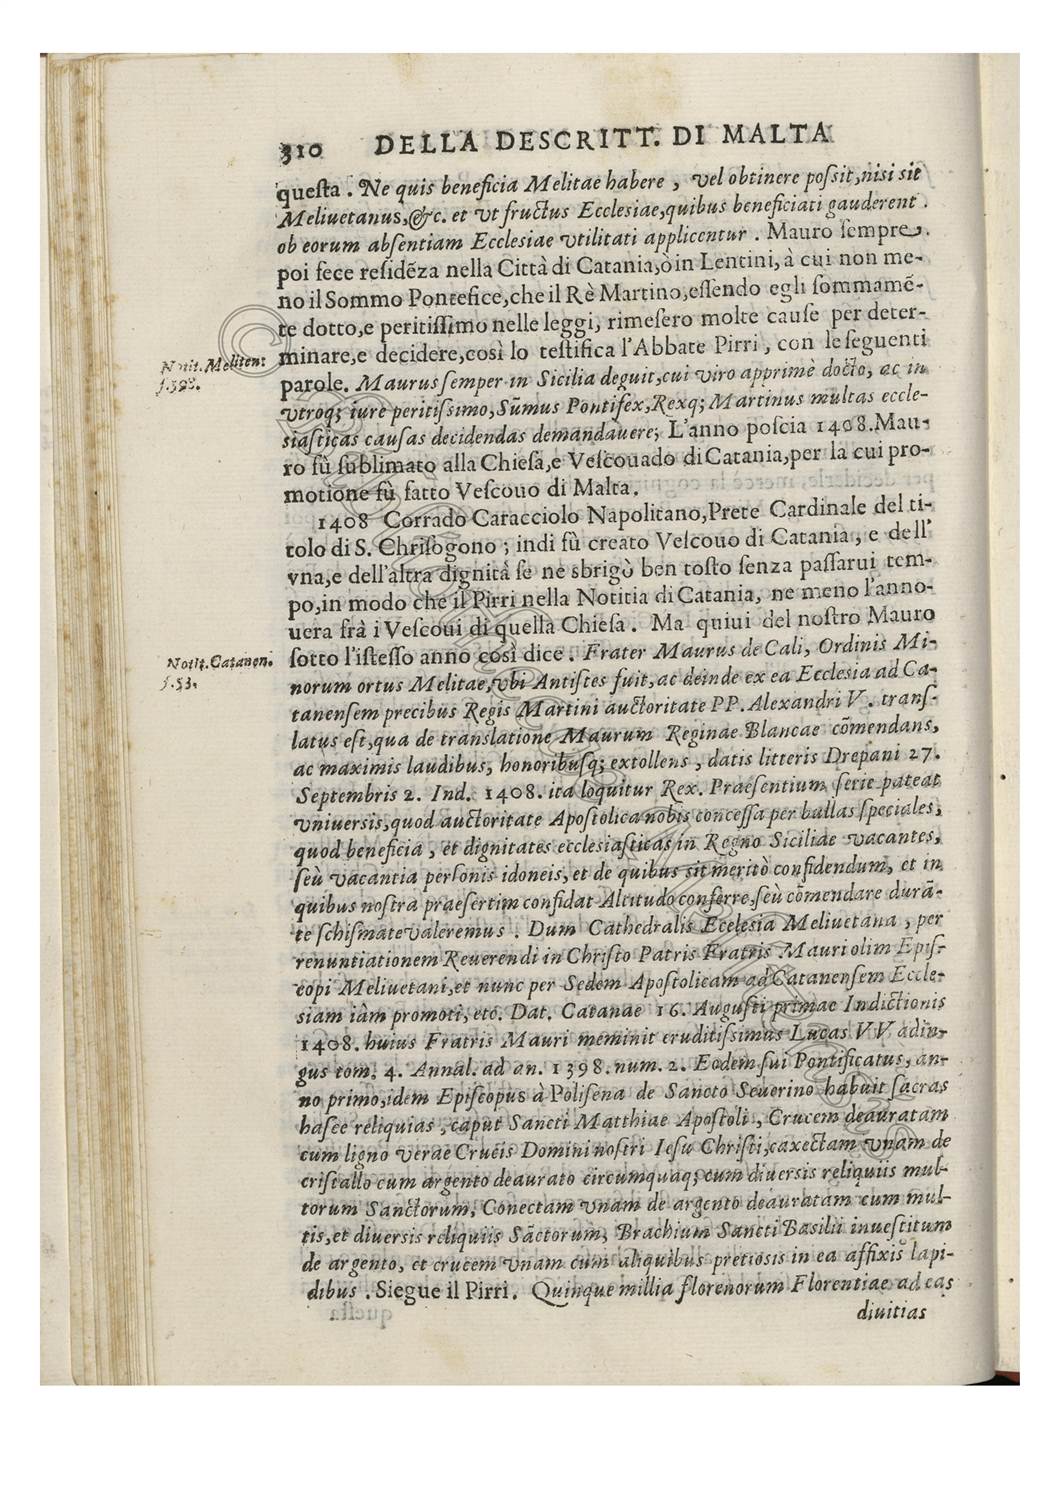 310 DELLA DESCRITT. DI MALTA
questa. Ne quis beneficia Melitae habere, vel obtinere possit, nisi sit
Meliuetanus, &c. et vt fructus Ecclesiae, quibus beneficiati gauderent.
ob eorum absentiam Ecclesiae vtilitati applicentur. Mauro sempre
poi fece residẽza nella Città di Catania, ò in Lentini, à cui non me-
no il Sommo Pontefice, che il Rè Martino, essendo egli sommamẽ-
te dotto, e peritissimo nelle leggi, rimesero molte cause per deter-
Notit. Meliten:
minare, e decidere, così lo testifica l'Abbate Pirri, con le seguenti
f.593.
parole. Maurus semper in Sicilia deguit, cui viro apprimè docto, ac in
vtroq; iure peritissimo, Sũmus Pontifex, Rexq; Martinus multas eccle-
siasticas causas decidendas demandauere; L'anno poscia 1408. Mau-
ro fù sublimato alla Chiesa, e Vescouado di Catania, per la cui pro-
motione fù fatto Vescouo di Malta.
1408 Corrado Caracciolo Napolitano, Prete Cardinale del ti-
tolo di S. Chrisogono; indi fù creato Vescouo di Catania, e dell'
vna, e dell'altra dignità se ne sbrigò ben tosto senza passarui tem-
po, in modo che il Pirri nella Notitia di Catania, ne meno l'anno-
uera frà i Vescoui di quella Chiesa. Ma quiui del nostro Mauro
Notit. Catanen.
sotto l'istesso anno così dice. Frater Maurus de Cali, Ordinis Mi-
f.53.
norum ortus Melitae, vbi Antistes fuit, ac deinde ex ea Ecclesia ad Ca-
tanensem precibus Regis Martini auctoritate PP. Alexandri V. trans-
latus est, qua de translatione Maurum Reginae Blancae cõmendans,
ac maximis laudibus, honoribusq; extollens, datis litteris Drepani 27.
Septembris 2. Ind. 1408. ita loquitur Rex. Praesentium serie pateat
vniuersis, quod auctoritate Apostolica nobis concessa per bullas speciales,
quod beneficia, et dignitates ecclesiasticas in Regno Siciliae vacantes,
seù vacantia personis idoneis, et de quibus sit meritò confidendum, et in
quibus nostra praesertim confidat Altitudo conferre, seù cõmendare durã-
te schismate valeremus. Dum Cathedralis Ecclesia Meliuetana, per
renuntiationem Reuerendi in Christo Patris Fratris Mauri olim Epis-
copi Meliuetani, et nunc per Sedem Apostolicam ad Catanensem Eccle-
siam iàm promoti, etc. Dat. Catanae 16. Augusti primae Indictionis
1408. huius Fratris Mauri meminit eruditissimus Lucas VVadin-
gus tom. 4. Annal. ad an. 1398. num. 2. Eodem sui Pontificatus, an-
no primo, idem Episcopus à Polisena de Sancto Seuerino habuit sacras
hasce reliquias, caput Sancti Matthiae Apostoli, Crucem deauratam
cum ligno verae Crucis Domini nostri Iesu Christi, caxectam vnam de
cristallo cum argento deaurato circumquaq; cum diuersis reliquiis mul-
torum Sanctorum, Conectam vnam de argento deauratam cum mul-
tis, et diuersis reliquiis Sãctorum, Brachium Sancti Basilii inuestitum
de argento, et crucem vnam cum aliquibus pretiosis in ea affixis lapi-
dibus. Siegue il Pirri. Quinque millia florenorum Florentiae ad eas
diuitias